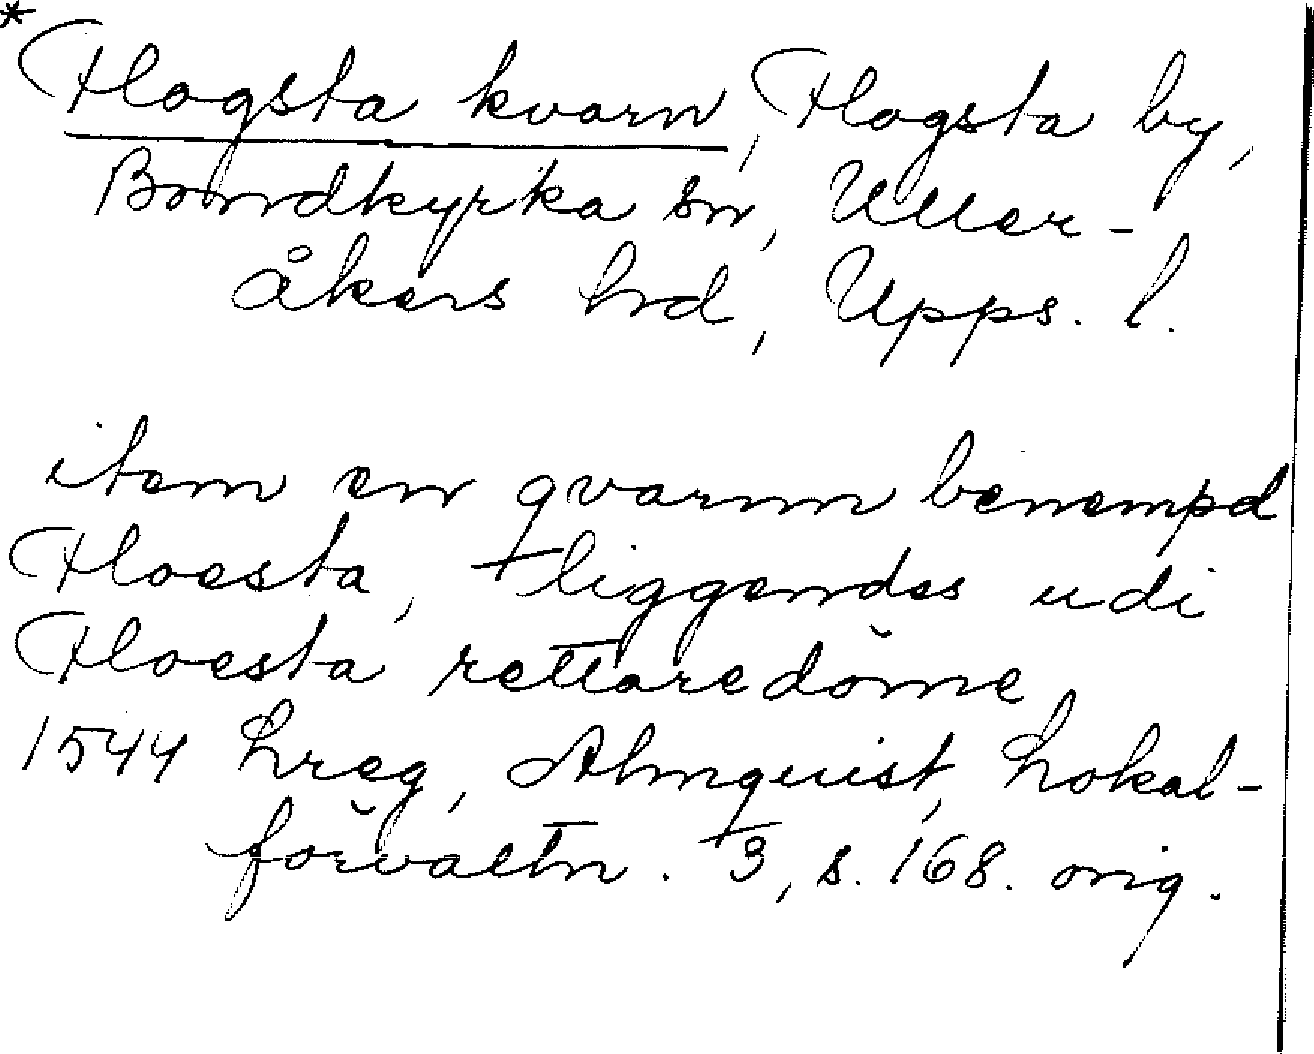 *
Flogsta kvarn, Flogsta by,
Bondkyrka sn, Uller-
åkers hd, Upps. l.
item en qvarnn benempd
Floesta, liggendes udi
Floesta rettaredöme,
1544 Lreg, Almquist, Lokal-
förvaltn. 3, s. 168. orig.